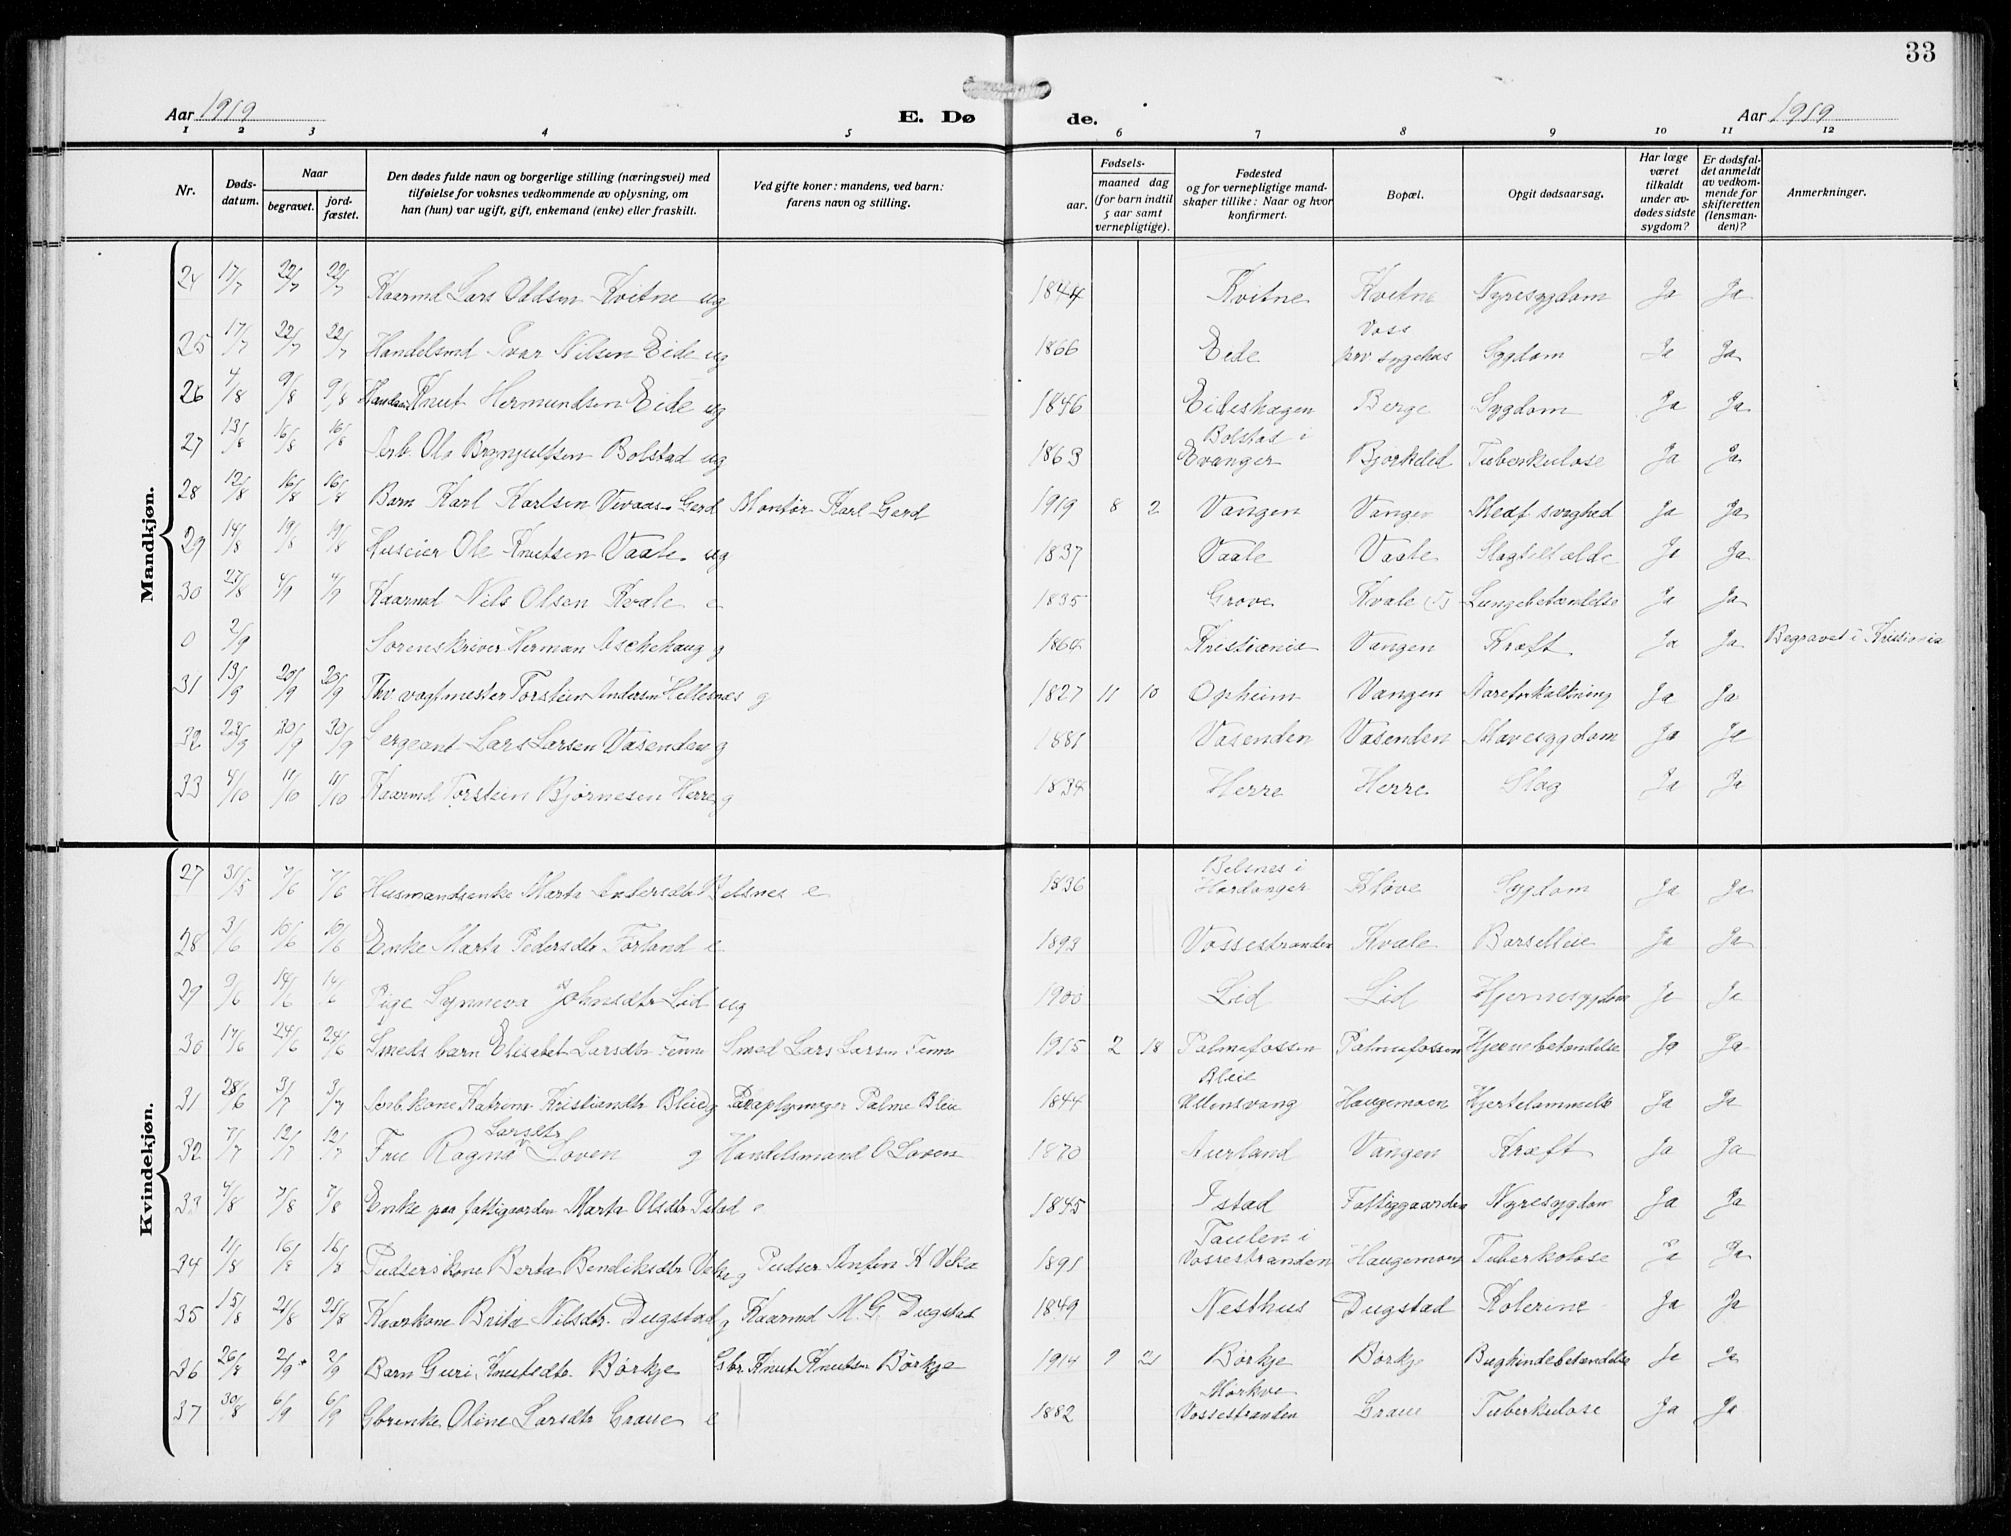 33
Aar 1919 E. Dø de. Aar 1919
1 2 3 4 5 6 7 8 9 10 11 12
Nr. Døds-datum. Naar begravet. jord-fæstet. Den dødes fulde navn og borgerlige stilling (næringsvei) med tilføielse for voksnes vedkommende av oplysning, om han (hun) var ugift, gift, enkemand (enke) eller fraskilt. Ved gifte koner: mandens, ved barn: farens navn og stilling. Fødsels- aar. maaned dag (for barn indtil 5 aar samt vernepligtige). Fødested og for vernepligtige mand-skaper tillike: Naar og hvor konfirmert. Bopæl. Opgit dødsaarsag. Har læge været tilkaldt under av-dødes sidste sygdom? Er dødsfal-det anmeldt av vedkom-mende for skifteretten (lensman-den)? Anmerkninger.
Mandkjøn.
24 17/7 22/7 22/7 Kaarmd Lars Oddsen Kvitne ug 1844 Kvitne Kvitne Nyresygdom Ja Ja
25 17/7 22/7 22/7 Handelsmd Ivar Nilsen Eide ug 1866 Eide Voss prv sygehus Sygdom Ja Ja
26 4/8 9/8 9/8 Knut Hermundsen Eide ug 1846 Eideshagen Berge Sygdom Ja Ja
27 13/8 16/8 16/8 Arb. Ole Brynjulfsen Bolstad ug 1863 Bolstad i Evanger Bjørkelid Tuberkulose Ja Ja
28 12/8 16/8 16/8 Barn Karl Karlsen Gerd Montør Karl Gerd 1919 8 2 Vangen Vangen Medf. svaghed Ja Ja
29 14/8 19/8 19/8 Huseier Ole Knutsen Vaale ug 1837 Vaale Vaale Slagtilfælde Ja Ja
30 27/8 4/9 4/9 Kaarmd Nils Olsen Kvale e 1835 Grove Kvale Lungebetændelse Ja Ja
0 2/9 Sorenskriver Herman Aschehaug g Kristiania Vangen Kræft Ja Ja Begravet i Kristiania
31 13/9 20/9 20/9 Fhv vagtmester Torstein Andersen Hellesnes g 1827 11 10 Opheim Vangen Aareforkalkning Ja Ja
32 30/9 30/9 Sergeant Lars Larsen Vasenden g 1881 Vasenden Vasenden Mavesygdom Ja Ja
33 4/10 11/10 11/10 Kaarmd Torstein Bjørnesen Herre g 1834 Herre Herre Slag Ja Ja
Kvindekjøn.
27 31/5 7/6 7/6 Husmandsenke Marta Andersdtr Belsnes e 1836 Belsnes i Hardanger Kløve Sygdom Ja Ja
28 3/6 10/6 10/6 Enke Marta Pedersdtr Førland e 1893 Vossestranden Kvale Barselleie Ja Ja
29 9/6 14/6 14/6 Pige Synneva Johnsdtr Lid ug 1900 Lid Lid Hjernesygdom Ja Ja
30 17/6 24/6 24/6 Smeds barn Elisabet Larsdtr Fenne Smed Lars Larsen Fenne 1915 2 18 Palmafossen Palmafossen Hjernebetændelse Ja Ja
31 28/6 3/7 3/7 Arb.kone Katrine Kristiandtr Bleie g Paraplymager Palme Bleie 1844 Bleie Ullensvang Haugemoen Hjertelammelse Ja Ja
32 7/7 12/7 12/7 Frue Ragna Larsdtr Loven g Handelsmand O Loven 1870 Aurland Vangen Kræft Ja Ja
33 4/8 7/8 7/8 Enke paa fattiggaarden Marta Olsdtr Istad e 1845 Istad Fattiggaarden Nyresygdom Ja Ja
34 11/8 16/8 16/8 Pudserskone Berta Bendiksdtr Veka g Pudser K Veka 1891 Taulen i Vossestranden Haugemoen Tuberkolose Ja Ja
35 15/8 21/8 21/8 Kaarkone Brita Nilsdtr. Dugstad g Kaarmd M. G. Dugstad 1849 Nesthus Dugstad Kolerine Ja Ja
36 26/8 2/9 2/9 Barn Guri Knutsdtr. Børkje Gbr. Knut Knutsen Børkje 1914 9 21 Børkje Børkje Bughindebetændelse Ja Ja
37 30/8 6/9 6/9 Gbrenke Oline Larsdtr Graue e 1882 Mørkve Vossestranden Graue Tuberkulose Ja Ja